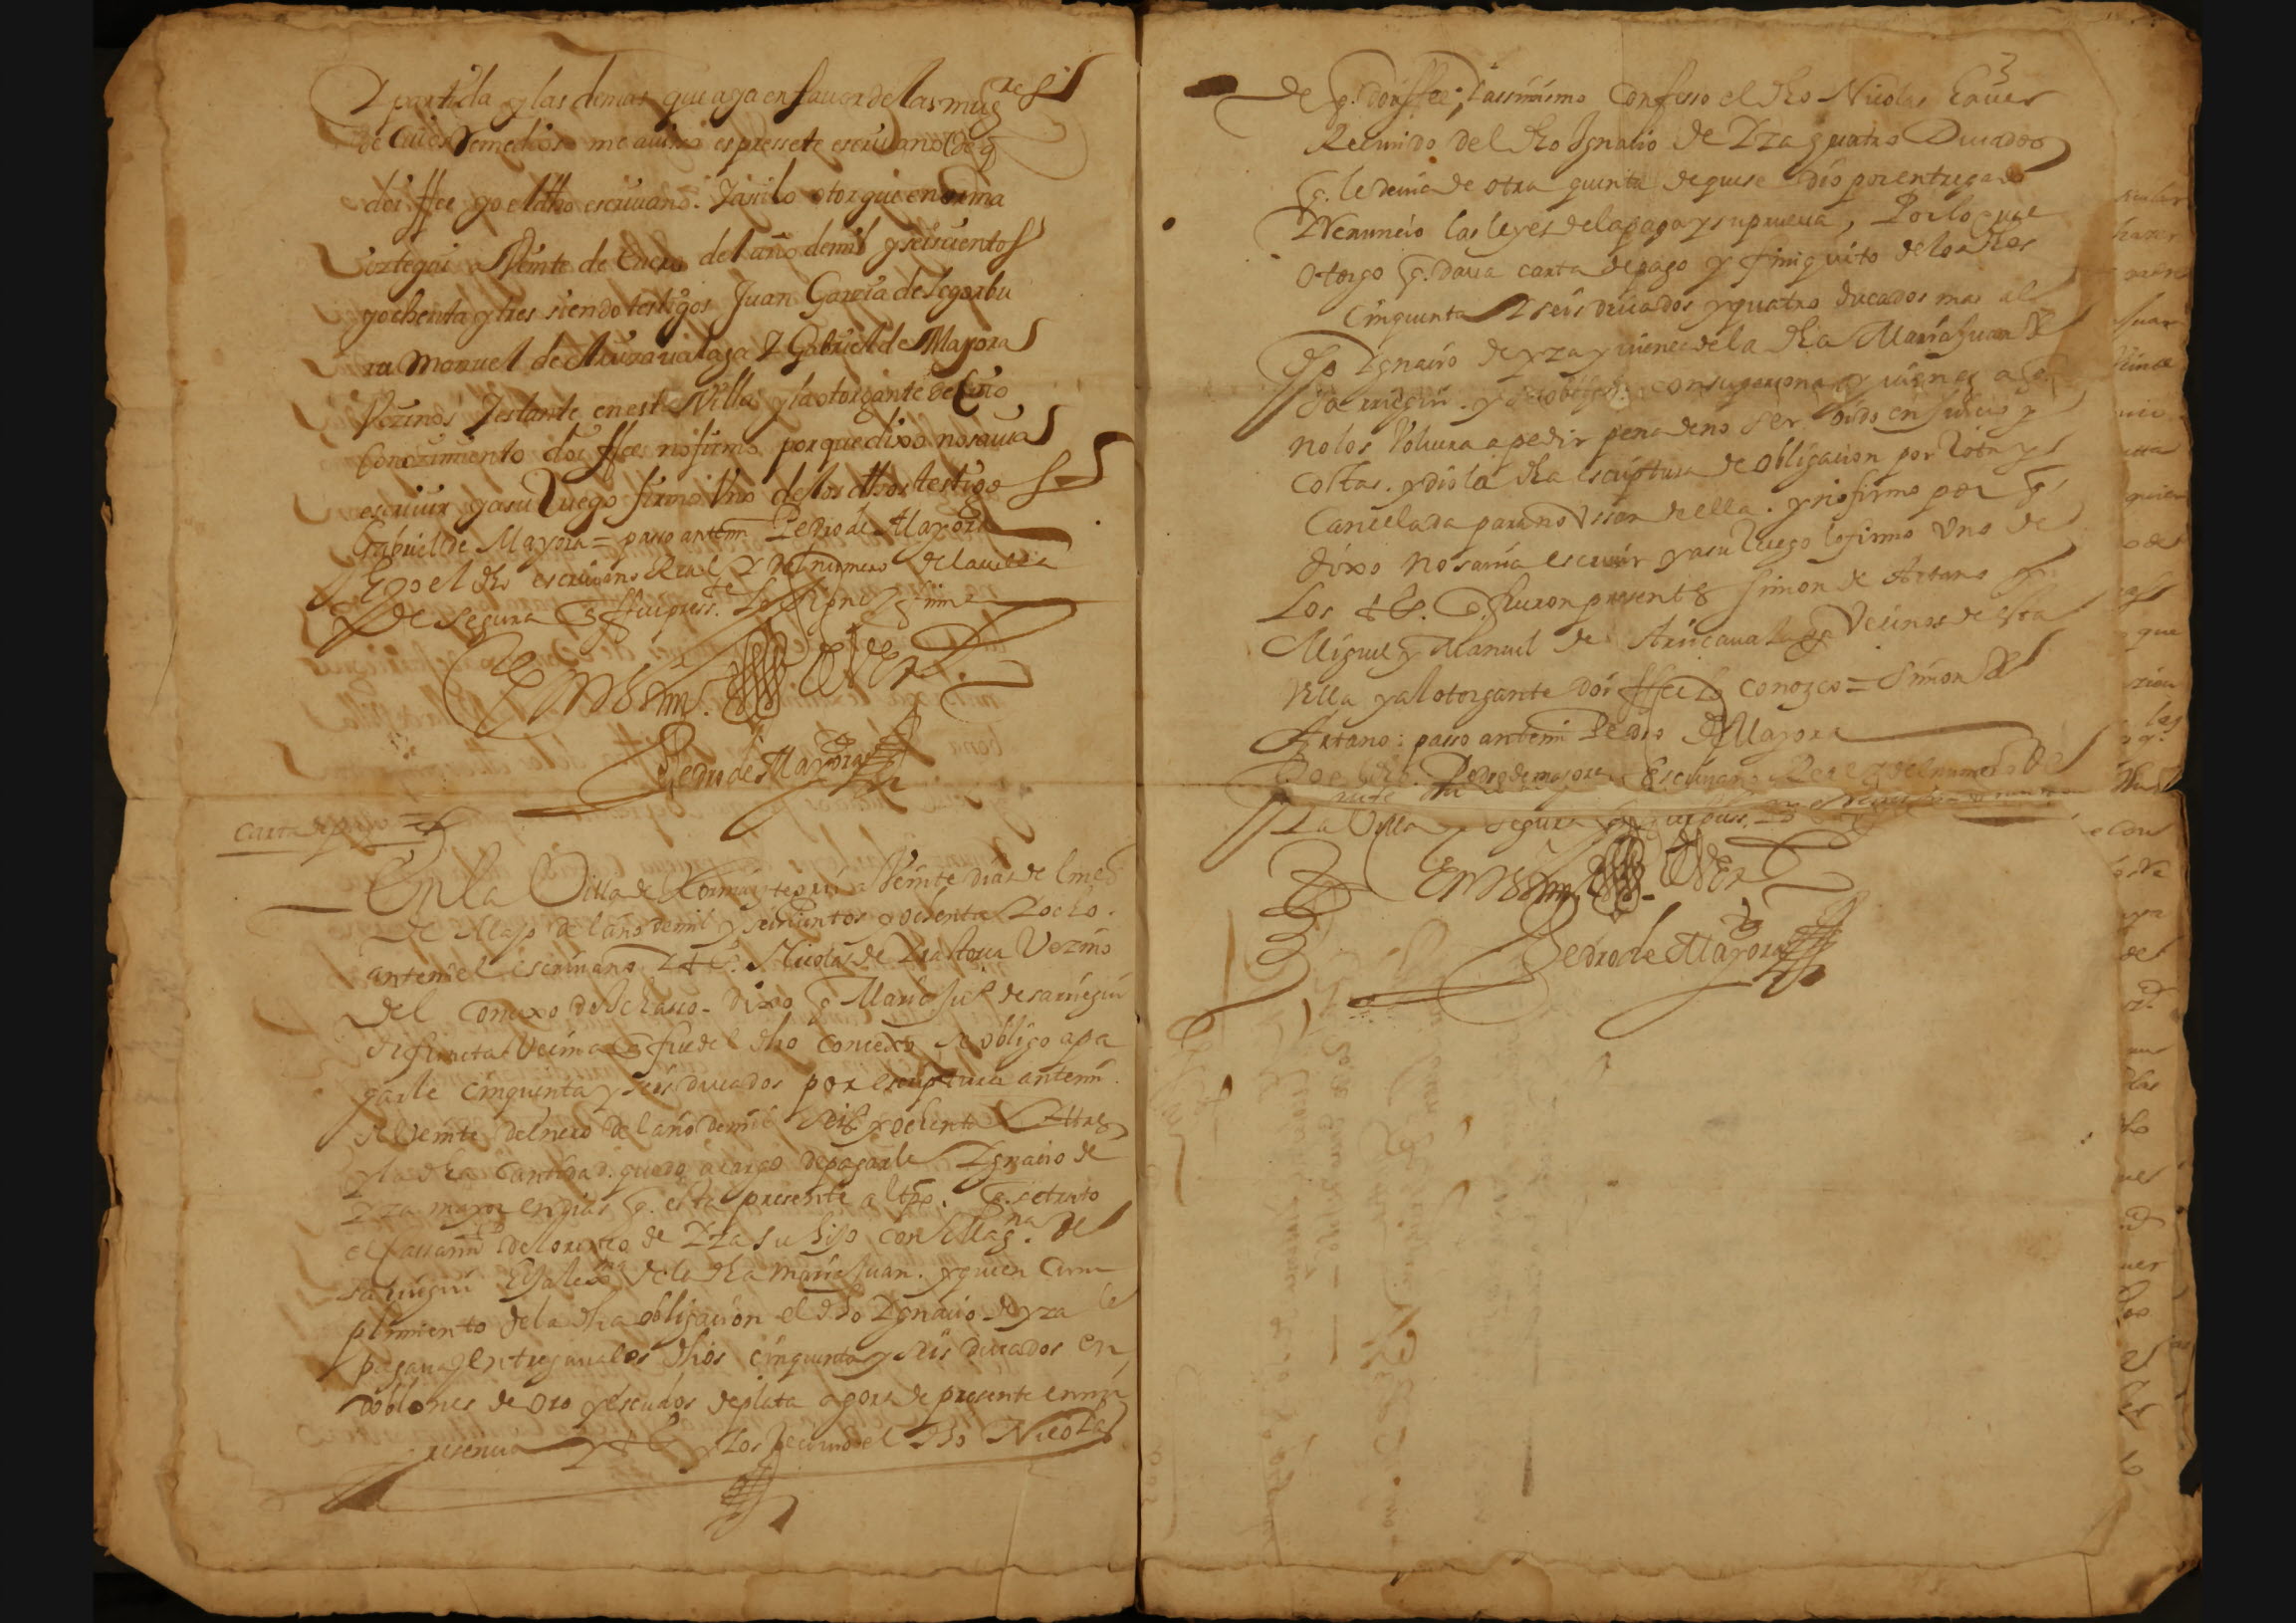 Y partida y las demas que aya en favor de las mugres
de cuios Remedios me auiso espresste escriuano de q
doi ffee yo el dho escriuano. Y assi lo otorgue en orma
iztegui a Veinte de Enero del año de mil y seiscientos
y ochenta y tres siendo testigos Juan Garcia de Segorbu
ra Manuel de Aruzaualaga Y Gabriel de Mayora
Vezinos Y estante en esta Villa y la otorgante de Cuio
Conozimiento doi ffee no firmo porque dixo no sauia
escriuir y a su Ruego firmo Vno de los dhos testigos
Gabriel de Mayora = passo antemi Pedro de Mayora
E yo el dho escriuano Real Y del numero de la villa
de Segura q fui presste lo signe y firme
En testim. de Ver
Pedro de Mayora
Carta de pago =
En la Villa de Ormayztegui a Veinte dias de l mes
de Mayo del año de mil y seiscientos y ochenta Y ocho.
antemi el escriuano Y tts. Nicolas de Yrastorza Vezino
del Concexo de dixo q Maria Ju.a de sarriegui
difuncta Vecina q fue del dho Concexo se obligo a pa
garle cinquenta y seis ducados por escriptura antemi.
a Veinte de enero del año de mil seiss y ochenta Y tres
y la dha cantidad. quedo a cargo de pagarle Ignacio de
Yza mayor en dias q. esta presente al tpo. q. se trato
el cassam.to de Lorenzo de Yza su hijo con Mag.na de
sarriegui hija lexma de la dha Maria Juan. y quien Cum
plimiento de la dha obligacion el dho Ygnacio de yza le
pagaua y entregaua los dhos cinquenta y seis ducados en
doblones de oro y escudos de plata agora de presente en mi
presencia y tts y los Recivio el dho Nicolas
3
de q. doi ffee; Y assimismo Confesso el dho Nicolas hauer
Reciuido del dho Ignacio de Yza quatro Ducados
q. le deuia de otra quenta de que se dio por entregado
Y Renuncio las leyes de la paga y su prueua, Por lo qual
otorgo q. daua carta de pago y finiquito de los dhos
Cinquenta Y seis ducados y quatro ducados mas al
dho Ignacio de yza y vienes de la dha Maria Juan de
sarriegui. y se obligo con su persona y vienes a q.
no los Voluera a pedir pena de no ser oido en Juicio y
costas. y dio la dha escriptura de obligacion por Rota y
Cancelada para no Vssar de ella. y no firmo por q.
dixo no sauia escriuir y a su Ruego lo firmo Vno de
Los tts. q. fueron presentes Simon de Artano
Miguel y Manuel de Arucaualaga Vecinos de esta
Villa y al otorgante doi ffee lo conozco = Simon de
Artano: passo antemi Pedro de Mayora
Yo el dho Pedro de mayora Escriuano Real y del numero de
La Villa de Segura q fui press.te
En testim. de Ver
Pedro de Mayora